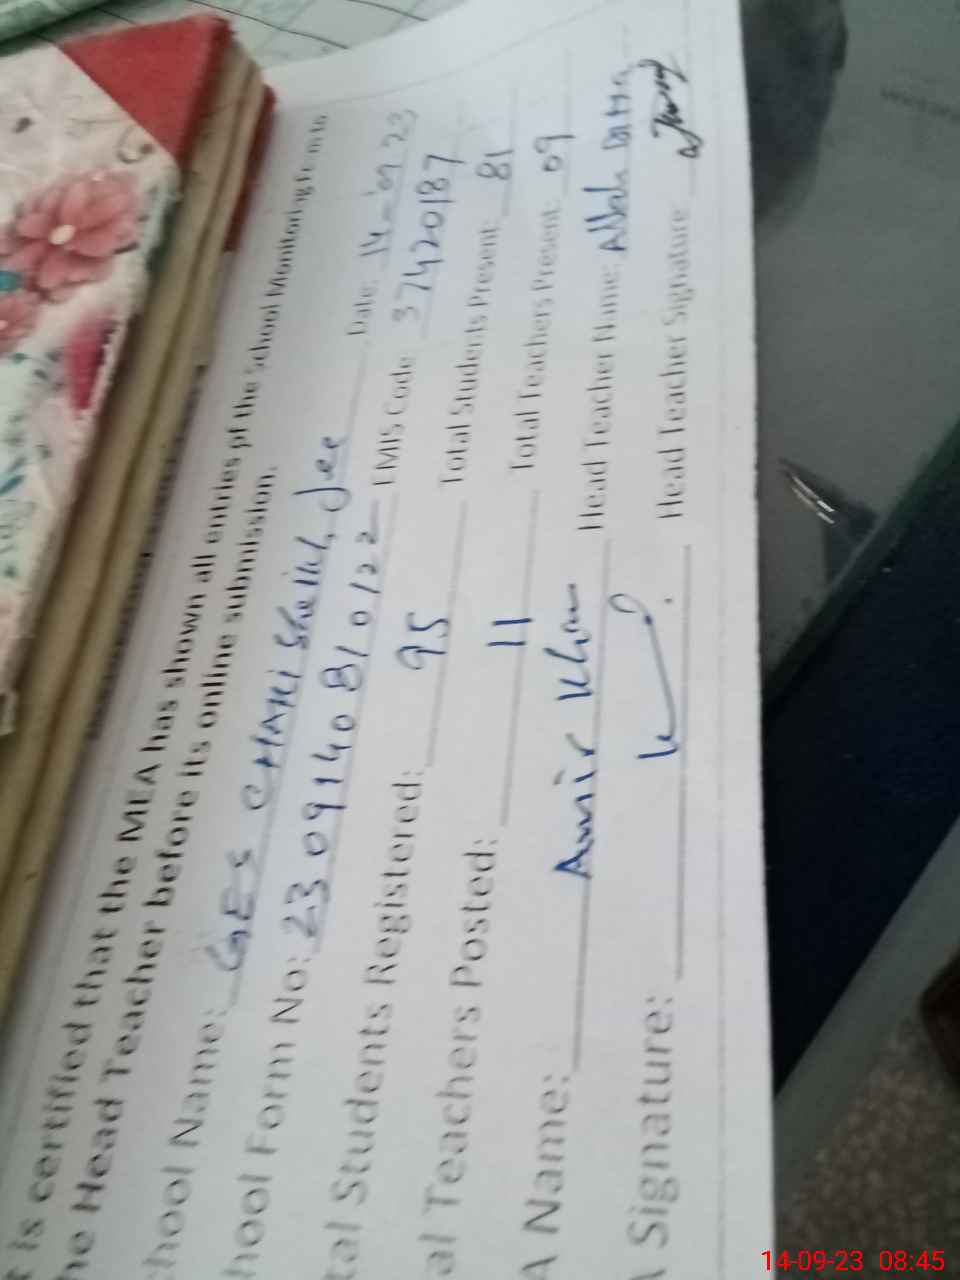 is certified that the MEA has shown all entries of the School Monitoring Form to
he Head Teacher before its online submission.
hool Name: GES CHAKI Sheikh Jee Date: 14-09-23
hool Form No: 2309140810122 EMIS Code: 37420187
tal Students Registered: 95 Total Students Present: 81
al Teachers Posted: 11 Total Teachers Present: 09
A Name: Amir Khan Head Teacher Name: Allah Ditta
Signature: Head Teacher Signature:
14-09-23 08:45